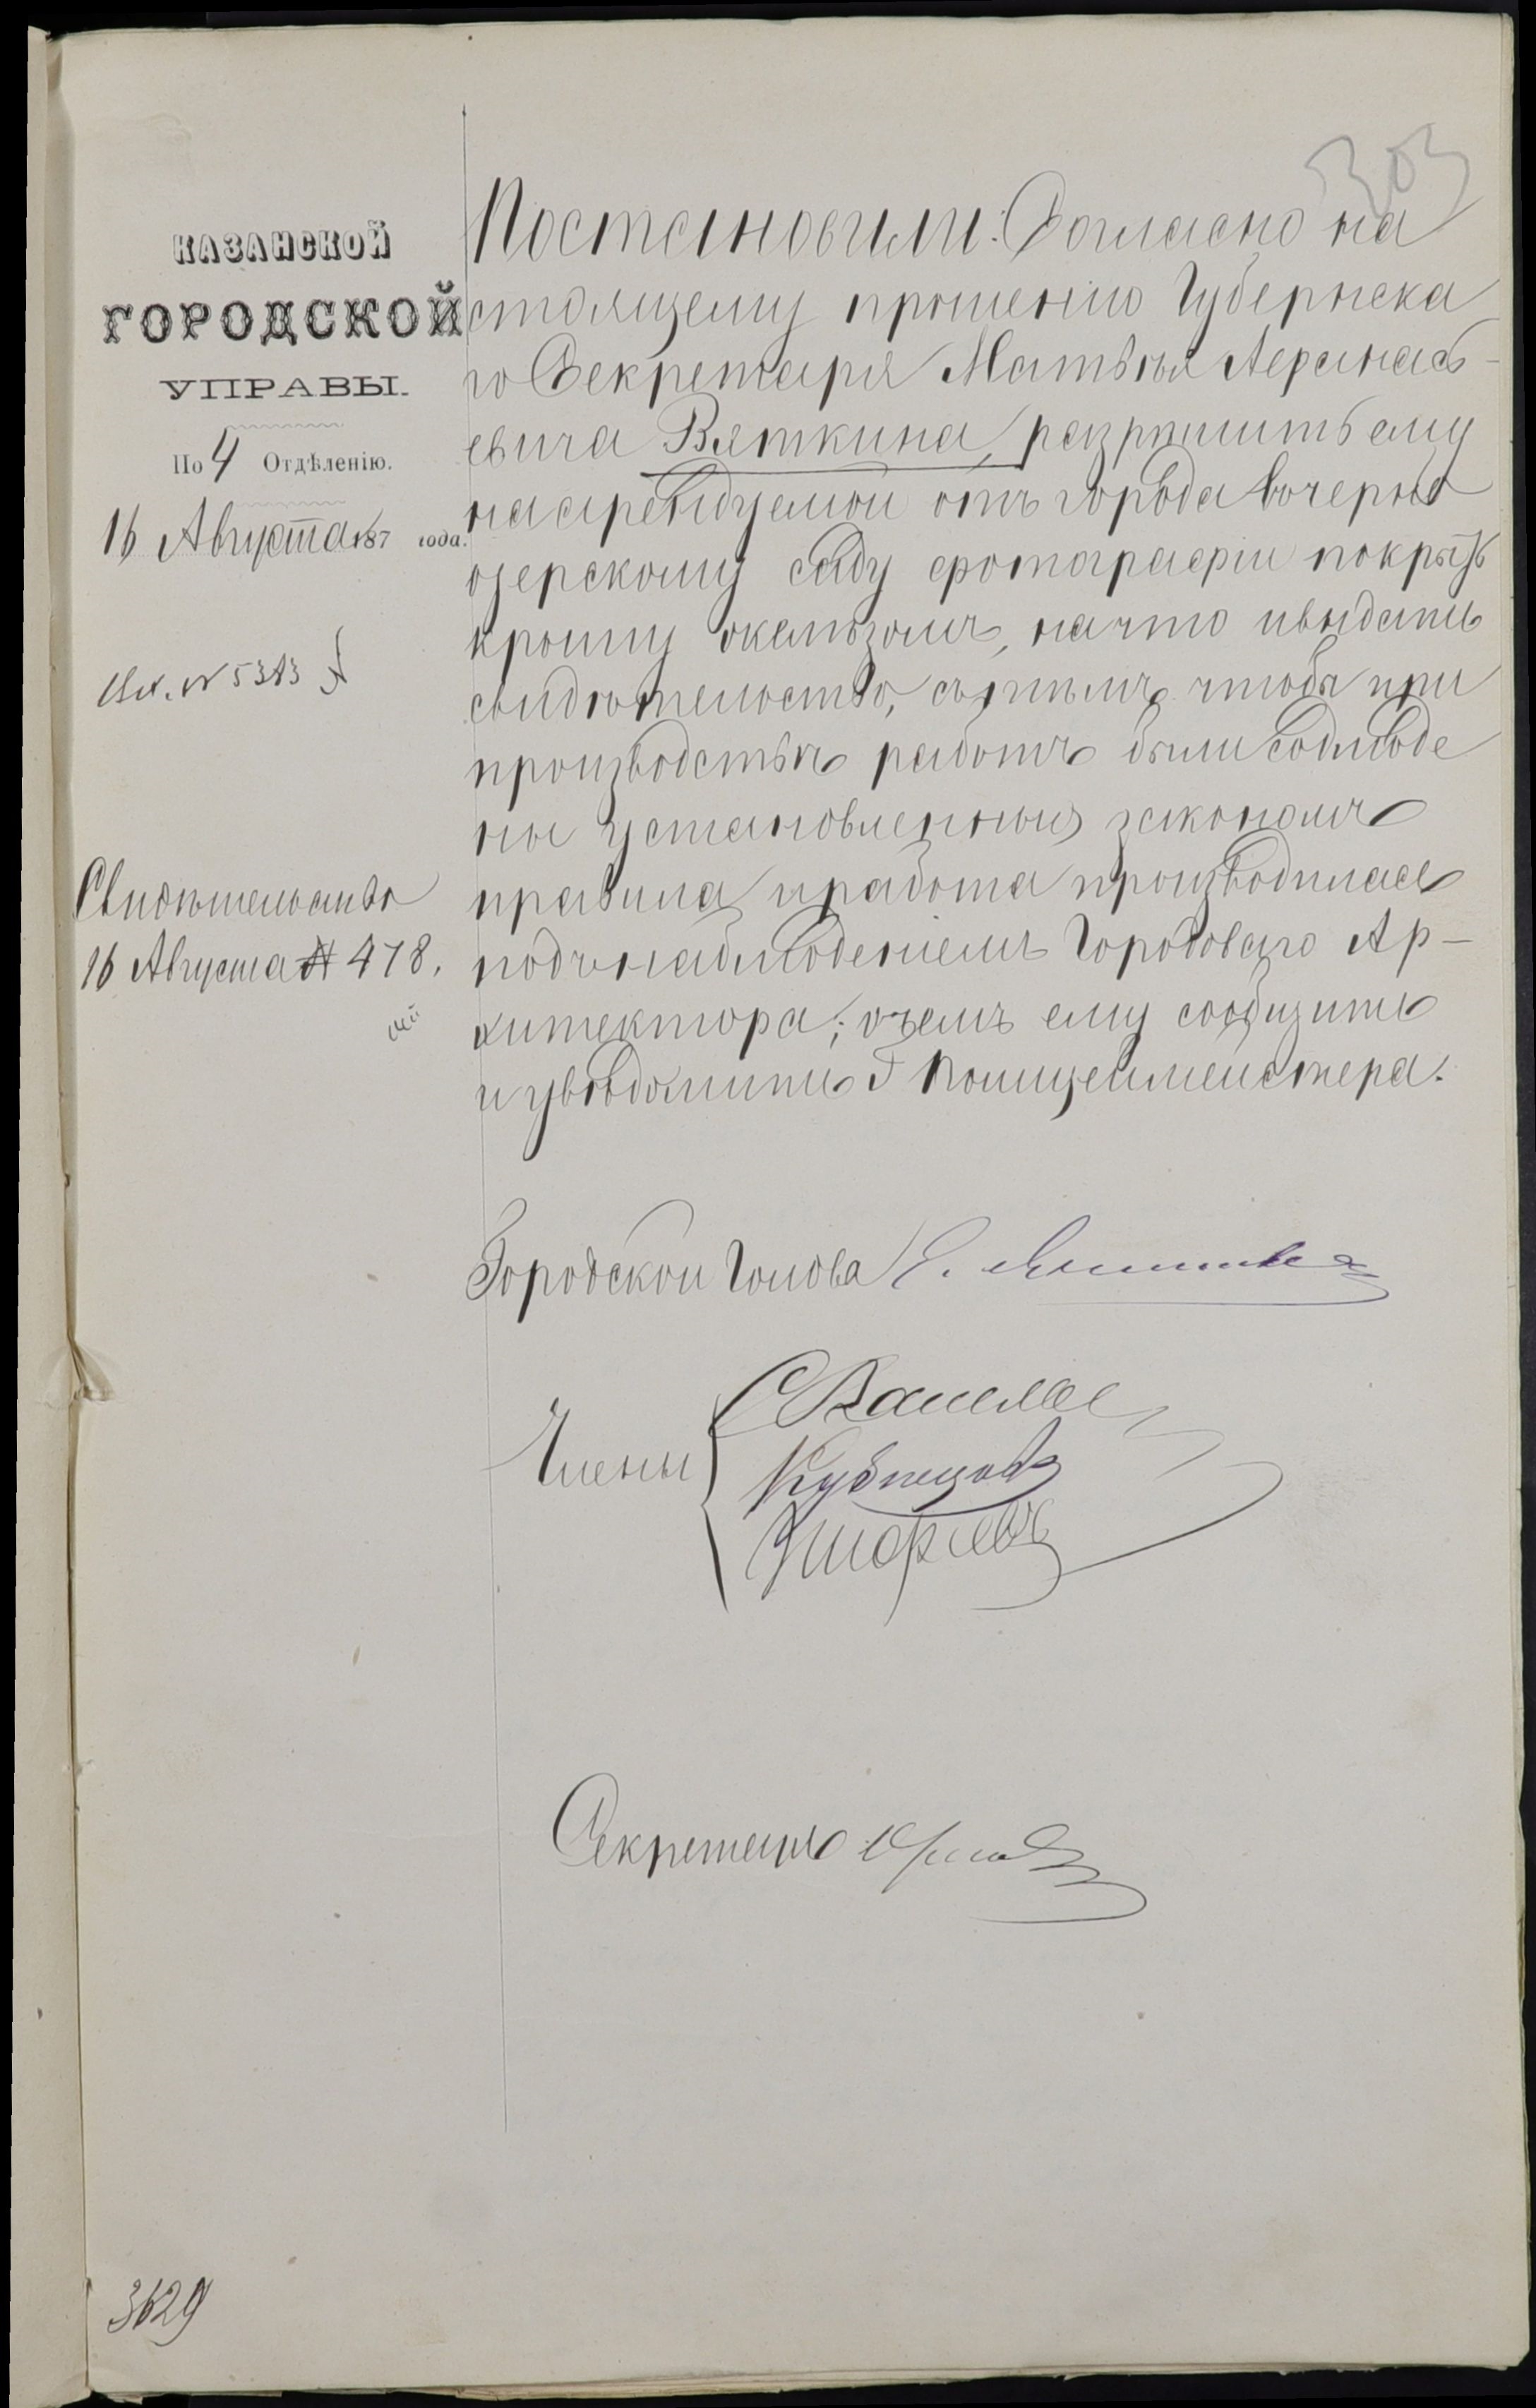 303
КАЗАНСКОЙ
ГОРОДСКОЙ
УПРАВЫ.
По 4 Отдѣленію.
16 Августа 187 года.
Вх. № 5313
Свидѣтельство
16 Августа № 478.
Постановили: Согласно на
стоящему прошенію Губернска
го Секретаря Матвѣя Афанась-
евича Вяткина, разрѣшить ему
на арендуемой отъ города въ Черно
озерскому саду фотографіи покрыть
крышу желѣзомъ, на что и выдать
свидѣтельство, съ тѣмъ чтобы при
производствѣ работъ были соблюде
ны установленныя закономъ
правила и работа производилась
подъ наблюденіемъ Городоваго Ар-
хитектора; о чемъ ему сообщить
и увѣдомить Г Полицеймейстера.
Городской Голова
Члены
Кузнецовъ
Секретарь
3629